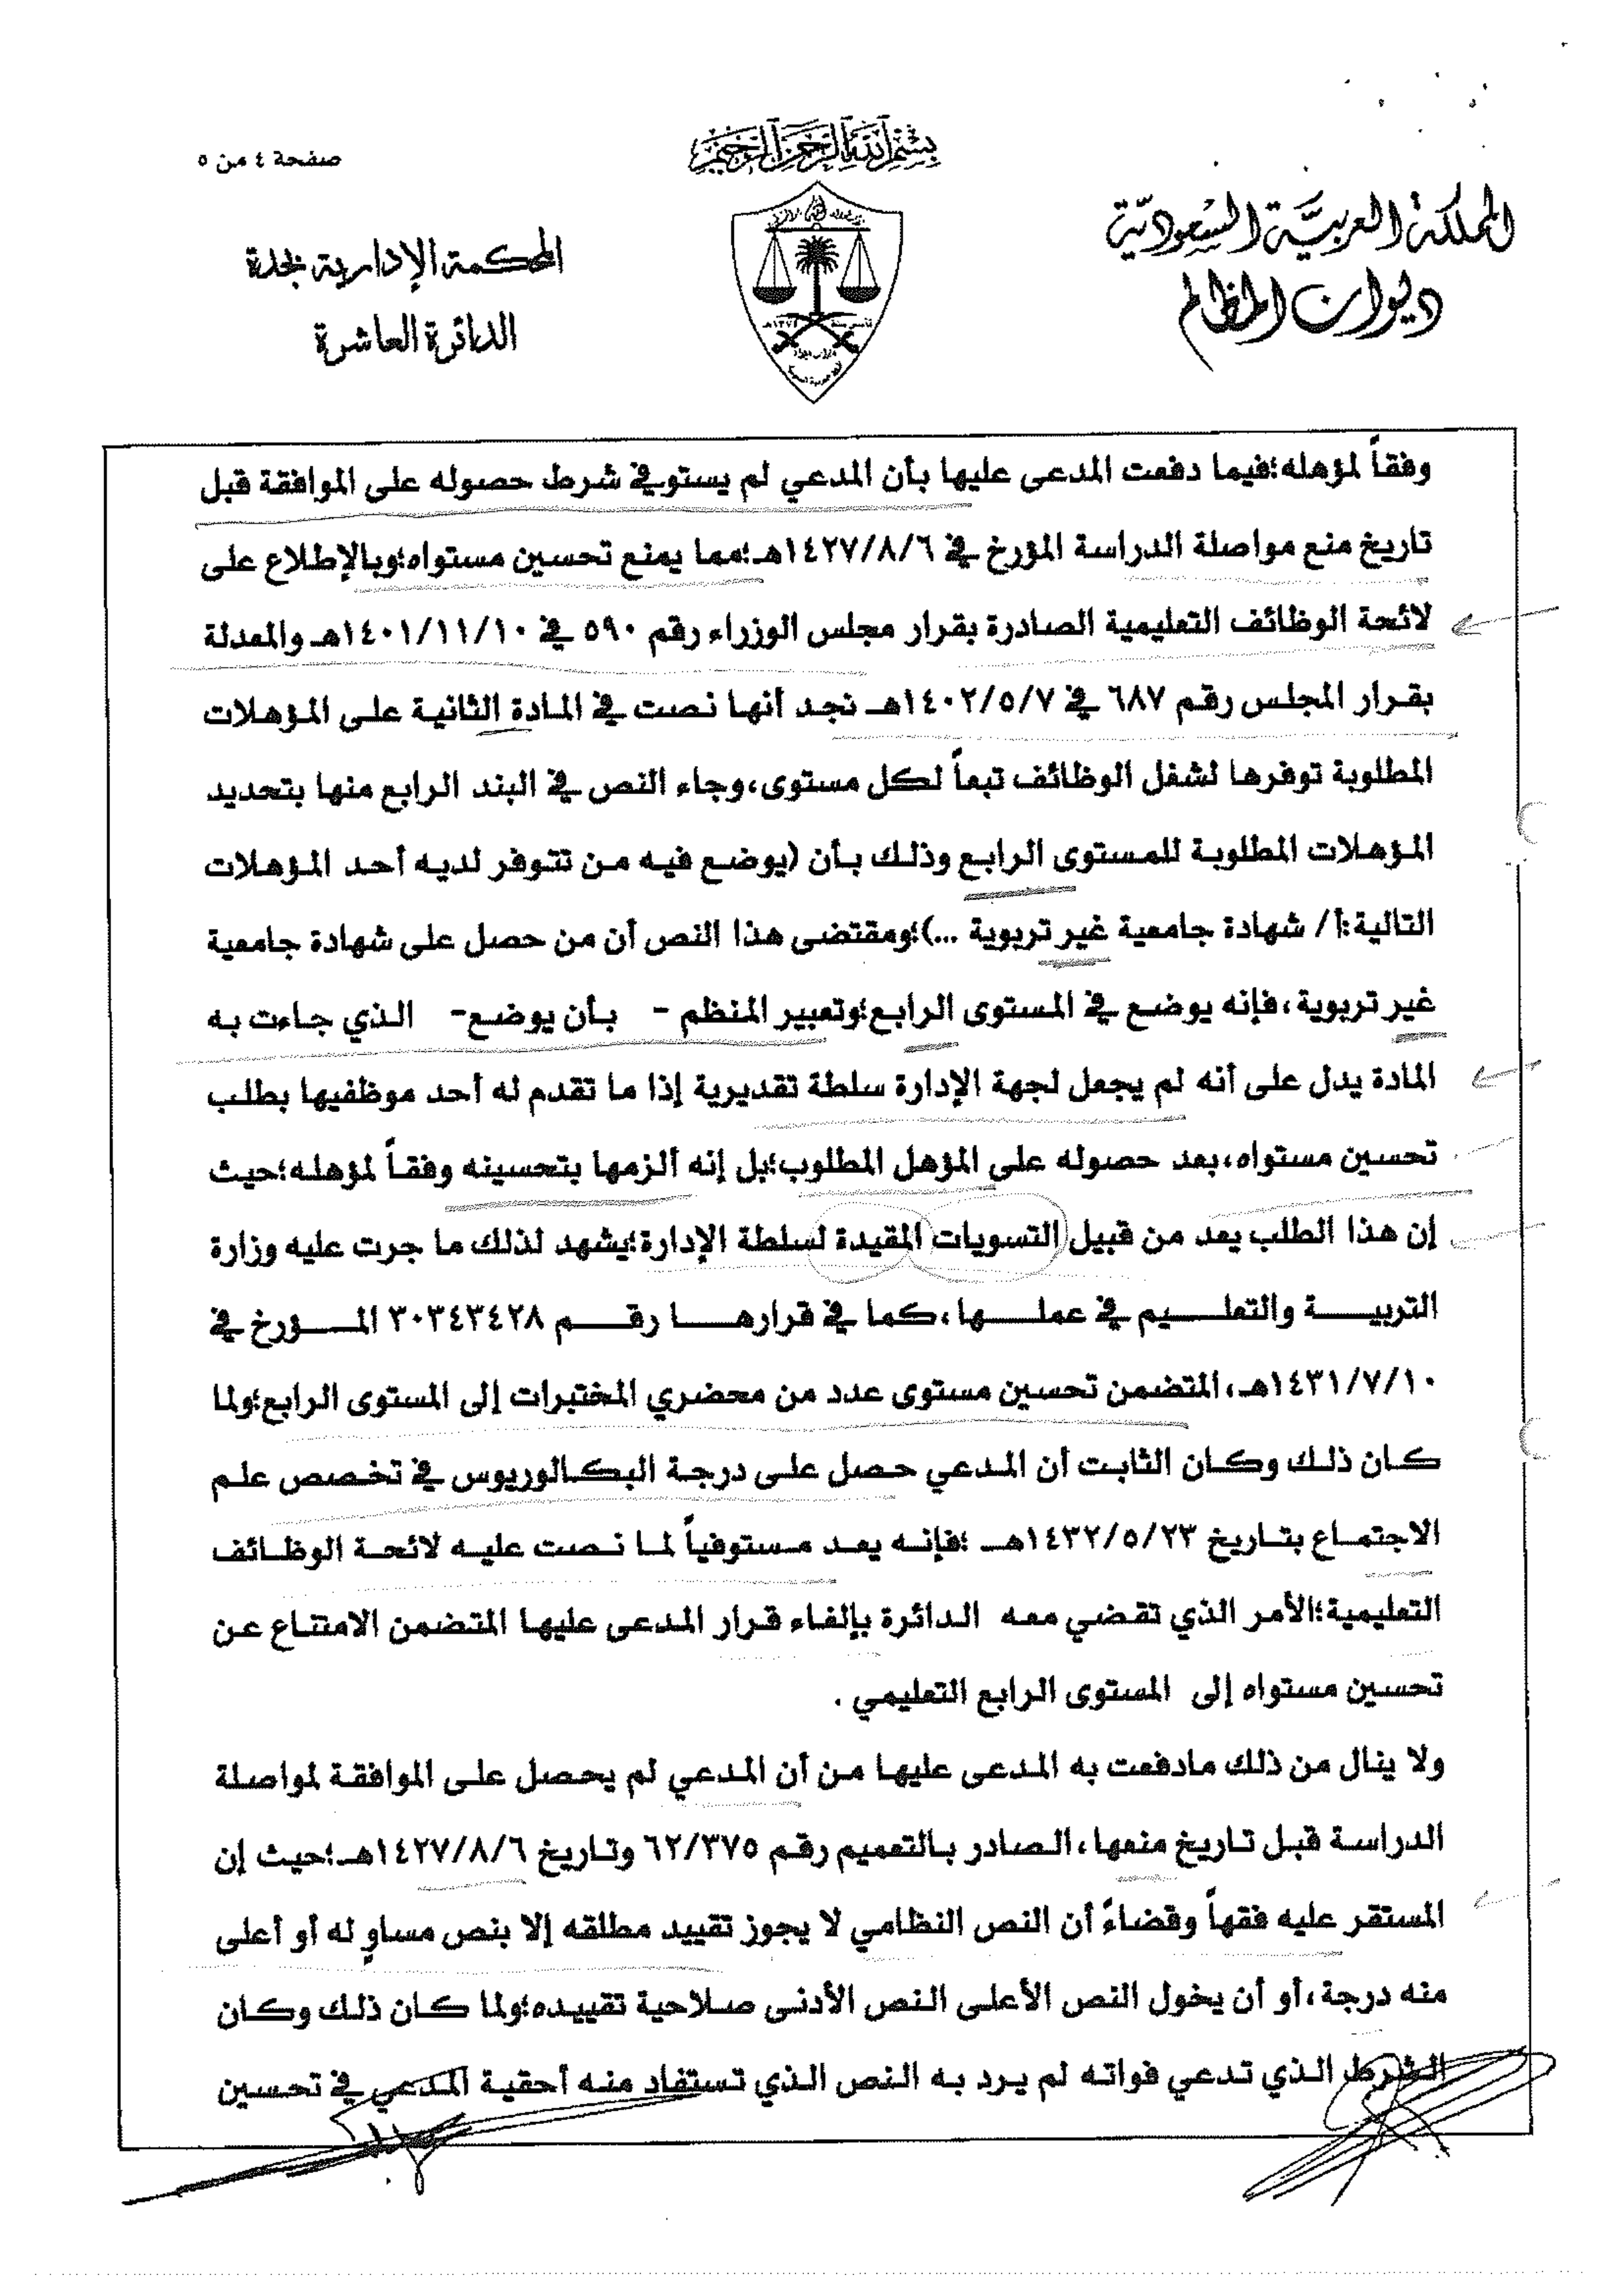 صفحة ٤ من ٥
بسم الله الرحمن الرحيم
المملكة العربية السعودية
ديوان المظالم
المحكمة الإدارية بجدة
الدائرة العاشرة
وفقاً لمؤهله؛فيما دفعت المدعى عليها بأن المدعي لم يستوفي شرط حصوله على الموافقة قبل
تاريخ منع مواصلة الدراسة المؤرخ في ١٤٢٧/٨/٦هـ؛مما يمنع تحسين مستواه؛وبالإطلاع على
لائحة الوظائف التعليمية الصادرة بقرار مجلس الوزراء رقم ٥٩٠ في ١٤٠١/١١/١٠هـ والمعدلة
بقرار المجلس رقم ٦٨٧ في ١٤٠٢/٥/٧هـ نجد أنها نصت في المادة الثانية على المؤهلات
المطلوبة توفرها لشغل الوظائف تبعاً لكل مستوى،وجاء النص في البند الرابع منها بتحديد
المؤهلات المطلوبة للمستوى الرابع وذلك بأن (يوضع فيه من تتوفر لديه أحد المؤهلات
التالية:أ/ شهادة جامعية غير تربوية ...)؛ومقتضى هذا النص أن من حصل على شهادة جامعية
غير تربوية،فإنه يوضع في المستوى الرابع؛وتعبير المنظم - بأن يوضع- الذي جاءت به
المادة يدل على أنه لم يجعل لجهة الإدارة سلطة تقديرية إذا ما تقدم له أحد موظفيها بطلب
تحسين مستواه،بعد حصوله على المؤهل المطلوب؛بل إنه ألزمها بتحسينه وفقاً لمؤهله؛حيث
إن هذا الطلب يعد من قبيل التسويات المقيدة لسلطة الإدارة؛يشهد لذلك ما جرت عليه وزارة
التربية والتعليم في عملها،كما في قرارها رقم ٣٠٣٤٣٤٢٨ المؤرخ في
١٤٣١/٧/١٠هـ،المتضمن تحسين مستوى عدد من محضري المختبرات إلى المستوى الرابع؛ولما
كان ذلك وكان الثابت أن المدعي حصل على درجة البكالوريوس في تخصص علم
الاجتماع بتاريخ ١٤٣٢/٥/٢٣هـ ؛فإنه يعد مستوفياً لما نصت عليه لائحة الوظائف
التعليمية؛الأمر الذي تقضي معه الدائرة بإلغاء قرار المدعى عليها المتضمن الامتناع عن
تحسين مستواه إلى المستوى الرابع التعليمي .
ولا ينال من ذلك مادفعت به المدعى عليها من أن المدعي لم يحصل على الموافقة لمواصلة
الدراسة قبل تاريخ منعها،الصادر بالتعميم رقم ٦٢/٣٧٥ وتاريخ ١٤٢٧/٨/٦هـ؛حيث إن
المستقر عليه فقهاً وقضاءً أن النص النظامي لا يجوز تقييد مطلقه إلا بنص مساوٍ له أو أعلى
منه درجة،أو أن يخول النص الأعلى النص الأدنى صلاحية تقييده؛ولما كان ذلك وكان
الشرط الذي تدعي فواته لم يرد به النص الذي تستفاد منه أحقية المدعي في تحسين